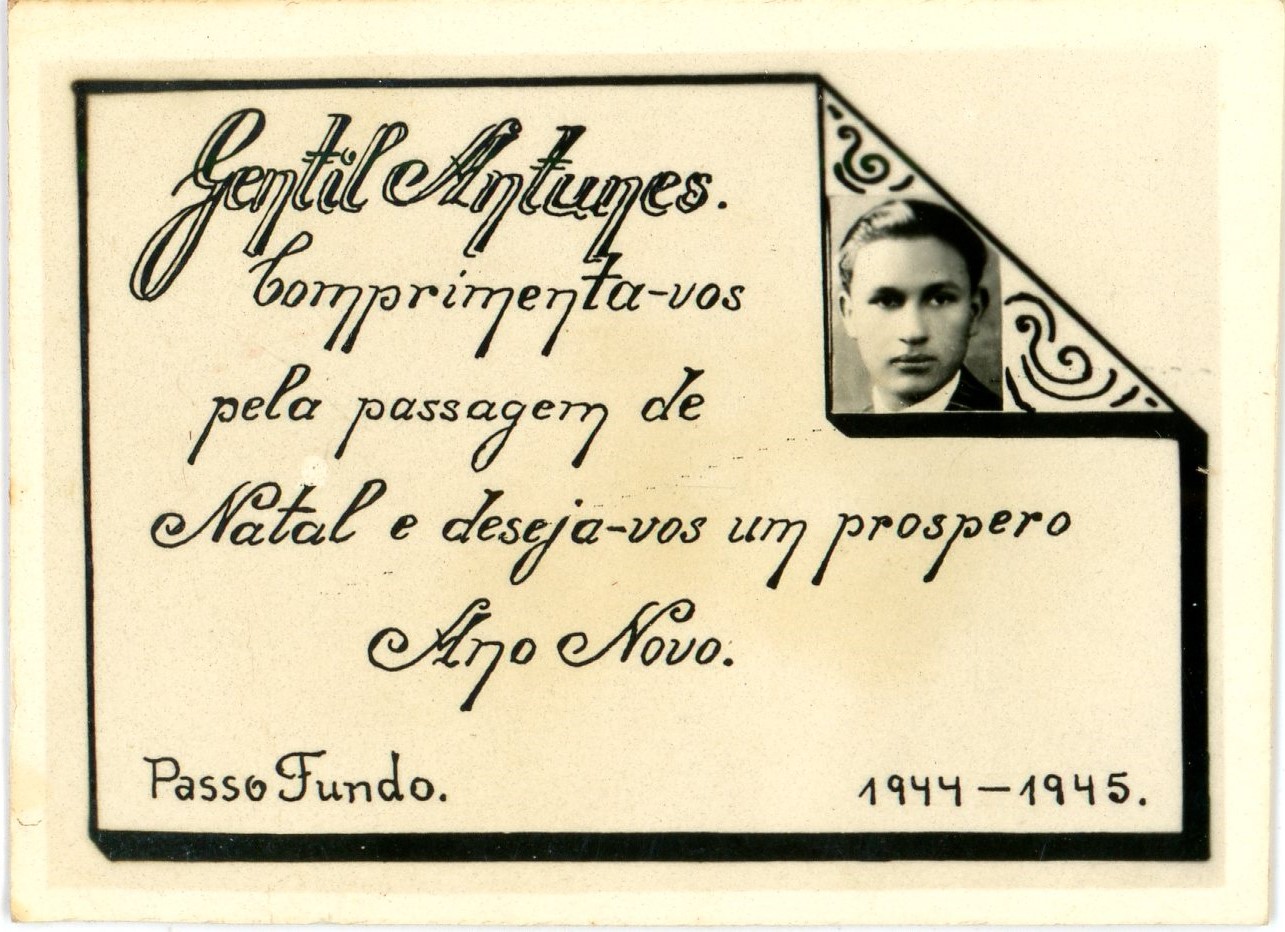 Gentil Antunes.
Comprimenta-vos
pela passagem de
Natal e deseja-vos um prospero
Ano Novo.
Passo Fundo.
1944-1945.